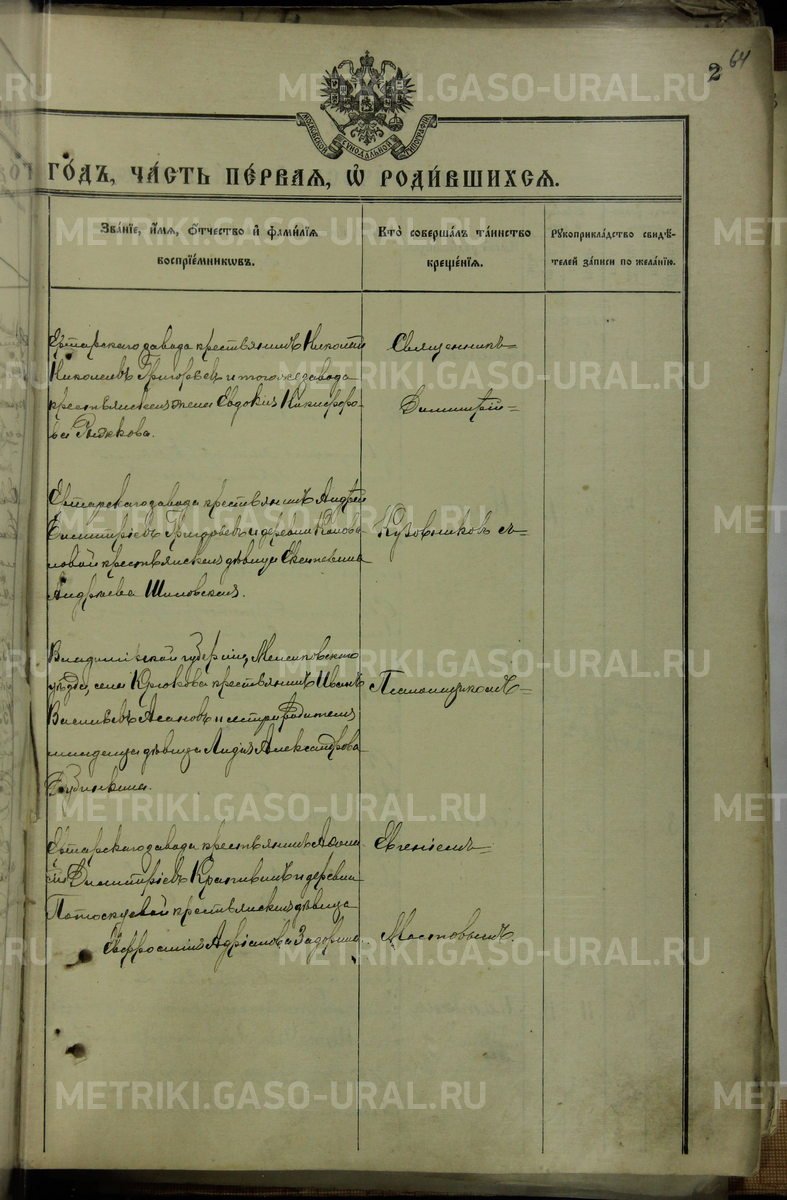 64
2
МОСКОВСКОЙ СѴНОДАЛЬНОЙ ТИПОГРАФІИ
ГО́ДЪ, ЧА́СТЬ ПЕ́РВАЯ, Ѡ҆ РОДИ́ВШИХСЯ.
Зва́ніе, и҆́мѧ, ѻ҆́тчество и҆ фами́лїѧ
воспрїе́мникѡвъ.
Кто̀ соверша́лъ та́инство
креще́нїѧ.
Рꙋкоприкла́дство свидѣ́-
телей за́писи по жела́нїю.
Ертарскаго завода крестьянинъ Николай
Николаевъ Григорьевъ и того же завода
крестьянская жена Евдокия Никифоро-
ва Рыжкова.
Священникъ
Димитрій
Ертарскаго завода крестьянинъ Андрей
Димитріевъ Григорьевъ и деревни
крестьянская дѣвица Екатерина
Андреева Шиловская.
Кузовниковъ съ
Владимірской губерніи, Меленковскаго
уѣзда, села Крюкова крестьянинъ Иванъ
Васильевъ Асановъ и сестра родителя
младенца дѣвица Лидия Александрова
Псаломщикомъ
Ертарскаго завода крестьянинъ
Димитріевъ Крапивинъ и деревни
Потоскуевой крестьянская дѣвица
Евфросинія Адріанова Задорина.
Евгеніемъ
Мостовымъ.
METRIKI.GASO-URAL.RU